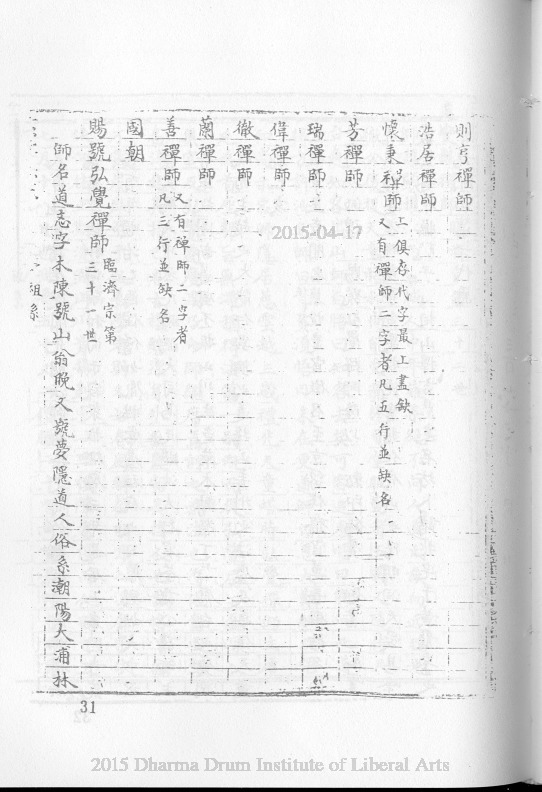 則亨禪師
浩居禪師
懷秉禪師 工俱存代字最上盡缺
又有禪師二字者凡五行並缺名
芳禪師
瑞禪師
偉禪師
徹禪師
蘭禪師
善禪師 又有禪師二字者
凡三行並缺名
國朝
賜號弘覺禪師 臨濟宗第
三十一世
師名道忞字木陳號山翁晚又號夢隱道人俗系潮陽大浦林
祖系
31
2015-04-17
2015 Dharma Drum Institute of Liberal Arts